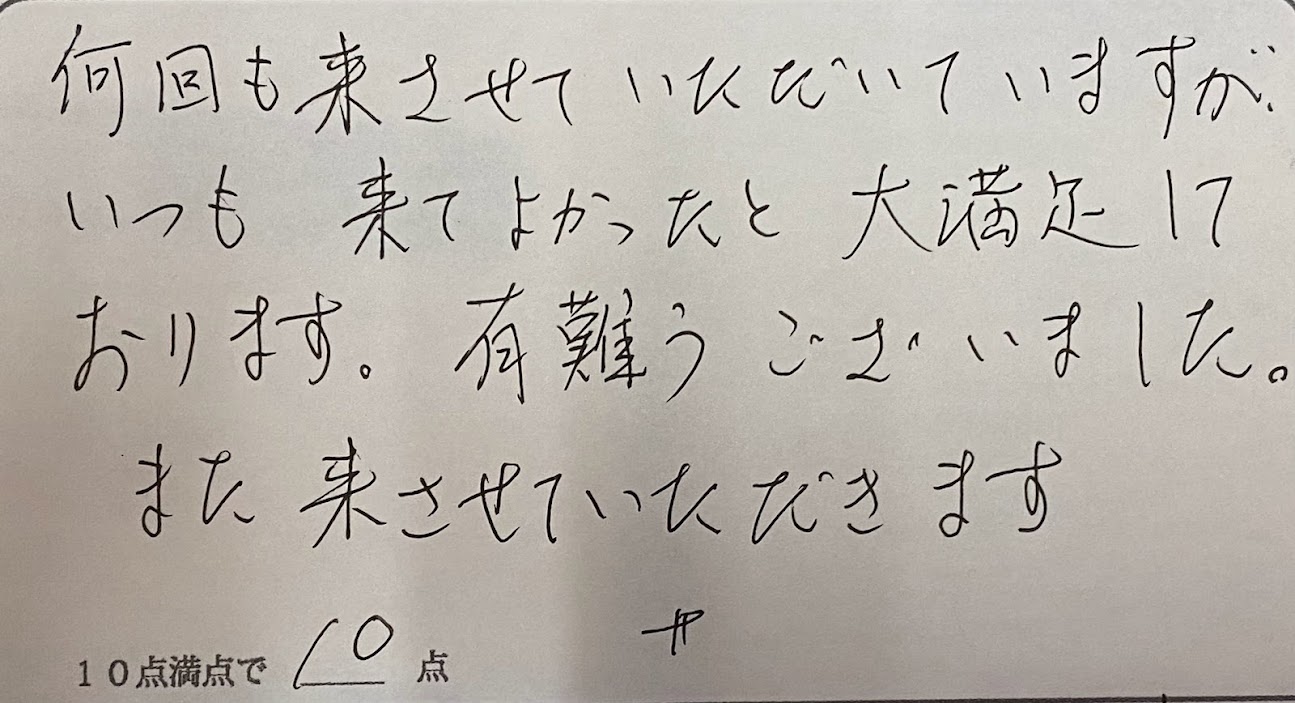 何回も来させていただいていますが、
いつも 来てよかったと 大満足して
おります。 有難うございました。
また 来させていただきます
10点満点で 10 点